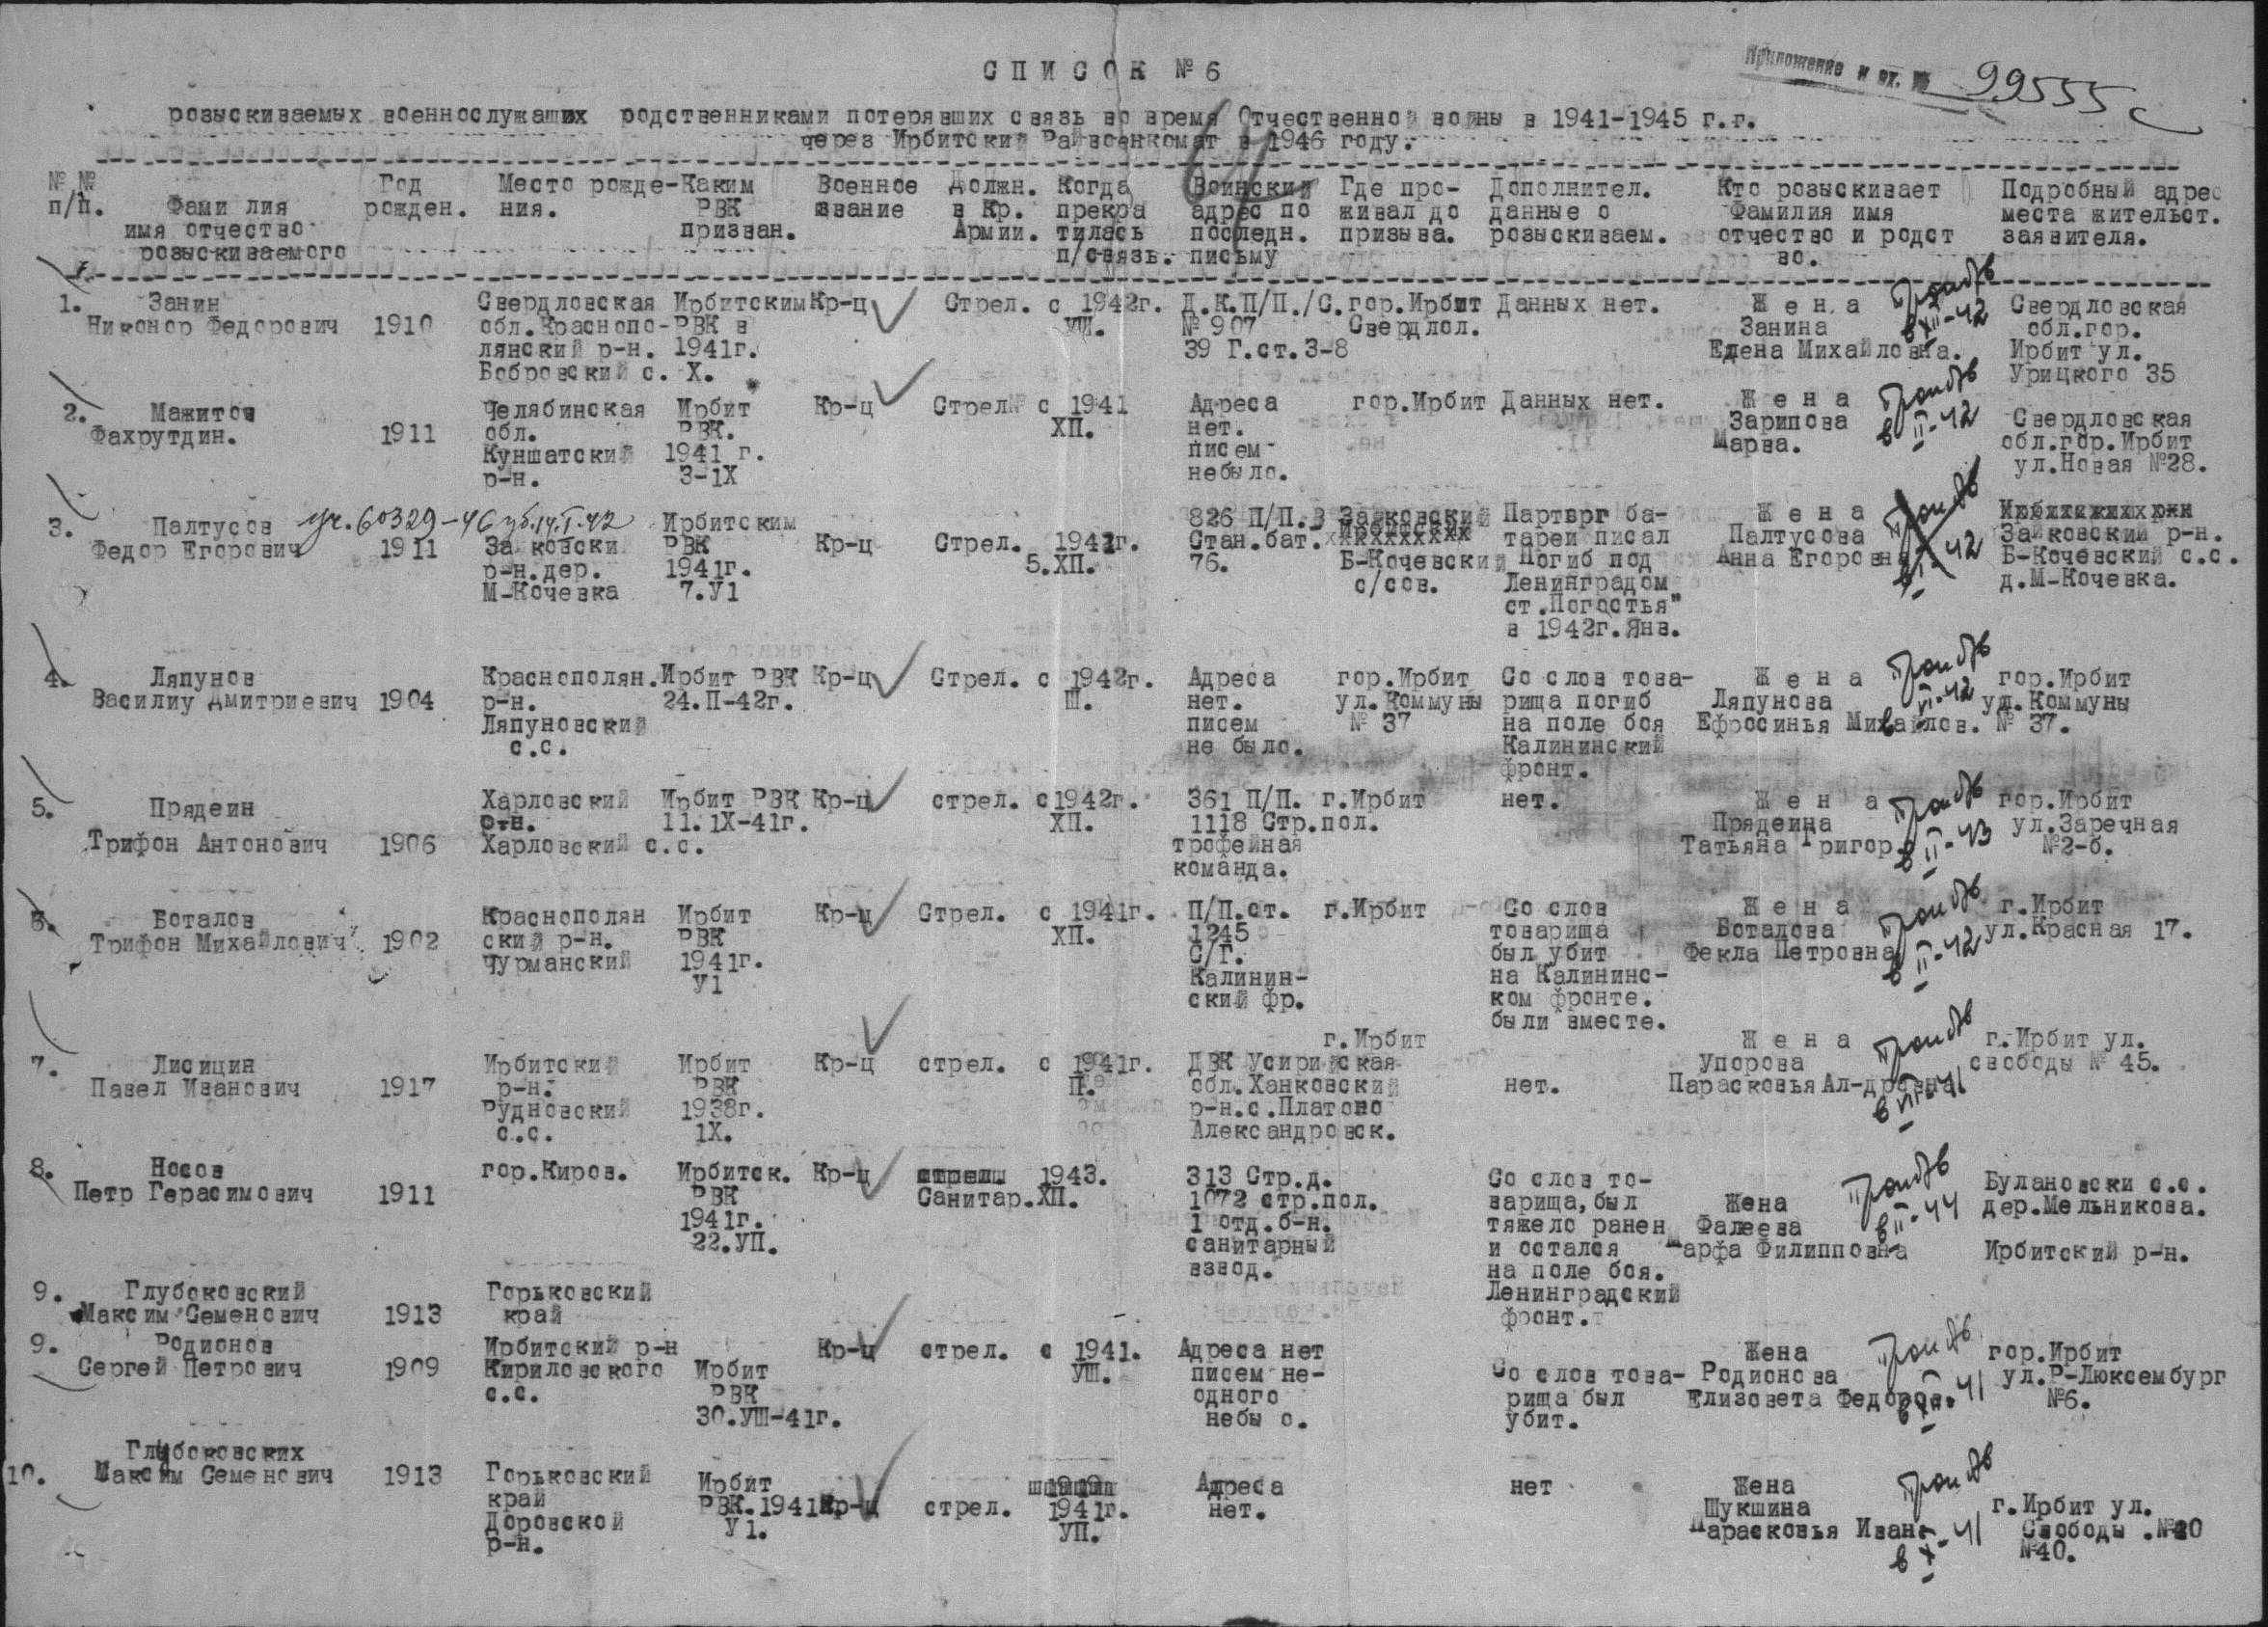 СПИСОК № 6
Приложение к вх. № 99555с
розыскиваемых военнослужащих родственниками потерявших связь во время Отчественной войны в 1941-1945 г.г.
через Ирбитский Райвоенкомат в 1946 году.
№ № п/п.
Фами лия имя отчество розыскиваемого
Год рожден.
Место рожде-ния.
Каким РВК призван.
Военное звание
Должн. в Кр. Армии.
Когда прекра тилась п/связь.
Воинский адрес по последн. письму
Где про-живал до призыва.
Дополнител. данные о розыскиваем.
Кто розыскивает Фамилия имя отчество и родст во.
Подробный адрес места жительст. заявителя.
1. Занин Свердловская Ирбитским Кр-ц Стрел. с 1942г. Д.К.П/П./С. гор.Ирбит Данных нет. Жена Свердловская
Никонор Федорович 1910 обл.Краснопо- РВК в УШ. № 907 Свердлол. Занина обл.гор.
лянский р-н. 1941г. 39 Г.ст.3-8 Елена Михайловна. Ирбит ул.
Бобровский с. Х. Урицкого 35
в XII-42
2. Мажитов Челябинская Ирбит Кр-ц Стрел. с 1941 Адреса гор.Ирбит Данных нет. Жена
Фахрутдин. 1911 обл. РВК. ХП. нет. Зарипова Свердловская
Куншатский 1941 г. писем Марва. обл.гор.Ирбит
р-н. 3-1Х небыло. ул.Новая №28.
в II-42
3. Палтусов уч.60329-46 уб.14.I.42 Ирбитским 826 П/П. Зайковский Партврг ба- Жена
Федор Егорович 1911 Зайковски РВК Кр-ц Стрел. 1941г. Стан.бат. тареи писал Палтусова Зайковский р-н.
р-н.дер. 1941г. 5.ХП. 76. Б-Кочевский Погиб под Анна Егоровна Б-Кочевский с.с.
М-Кочевка 7.У1 с/сов. Ленинградом д.М-Кочевка.
ст.Погостья"
в 1942г.Янв.
4. Ляпунов Краснополян. Ирбит РВК Кр-ц Стрел. с 1942г. Адреса гор.Ирбит Со слов това- Жена гор.Ирбит
Василиу Дмитриевич 1904 р-н. 24.П-42г. Ш. нет. ул.Коммуны рища погиб Ляпунова ул.Коммуны
Ляпуновский писем № 37 на поле боя Ефросинья Михайлов. № 37.
с.с. не было. Калининский
фронт.
в VI-42
5. Прядеин Харловский Ирбит РВК Кр-ц стрел. с1942г. 361 П/П. г.Ирбит нет. Жена гор.Ирбит
11.1Х-41г. ХП. 1118 Стр.пол. Прядеина ул.Заречная
Трифон Антонович 1906 Харловский с.с. трофейная Татьяна Григор. №2-б.
команда.
в II-43
Боталов Краснополян Ирбит Кр-ц Стрел. с 1941г. П/П.ст. г.Ирбит Со слов Жена г.Ирбит
Трифон Михайлович 1902 ский р-н. РВК ХП. 1245 товарища Боталова ул.Красная 17.
Чурманский 1941г. С/Г. был убит Фекла Петровна
У1 Калинин- на Калининс-
ский фр. ком фронте.
были вместе.
в II-42
г.Ирбит Жена г.Ирбит ул.
7. Лисицин Ирбитский Ирбит Кр-ц стрел. с 1941г. ДВК Усирийская Упорова свободы № 45.
Павел Иванович 1917 р-н. РВК П. обл.Ханковский нет. Парасковья Ал-дровна
Рудновский 1938г. р-н.с.Платоно
с.с. 1Х. Александровск.
8. Носов гор.Киров. Ирбитск. Кр-ц 1943. 313 Стр.д. Со слов то- Булановски с.с.
Петр Герасимович 1911 РВК Санитар. ХП. 1072 стр.пол. варища,был Жена дер.Мельникова.
1941г. 1 отд.б-н. тяжело ранен Фалеева
22.УП. санитарный и остался Марфа Филипповна Ирбитский р-н.
взвод. на поле боя.
Ленинградский
фронт.
в II-44
9. Глубоковский Горьковский
Максим Семенович 1913 край
9. Родионов Ирбитский р-н Кр-ц стрел. с 1941. Адреса нет Жена гор.Ирбит
Сергей Петрович 1909 Кириловского Ирбит УШ. писем не- Со слов това- Родионова ул.Р-Люксембург
с.с. РВК одного рища был Елизовета Федоров. №6.
30.УШ-41г. небы о. убит.
Глубоковских
10. Максим Семенович 1913 Горьковский Ирбит Адреса нет Жена
край РВК.1941 Кр-ц стрел. 1941г. нет. Шукшина г.Ирбит ул.
Доровской У1. УП. Парасковья Иван. Свободы
р-н. №40.
в X-41